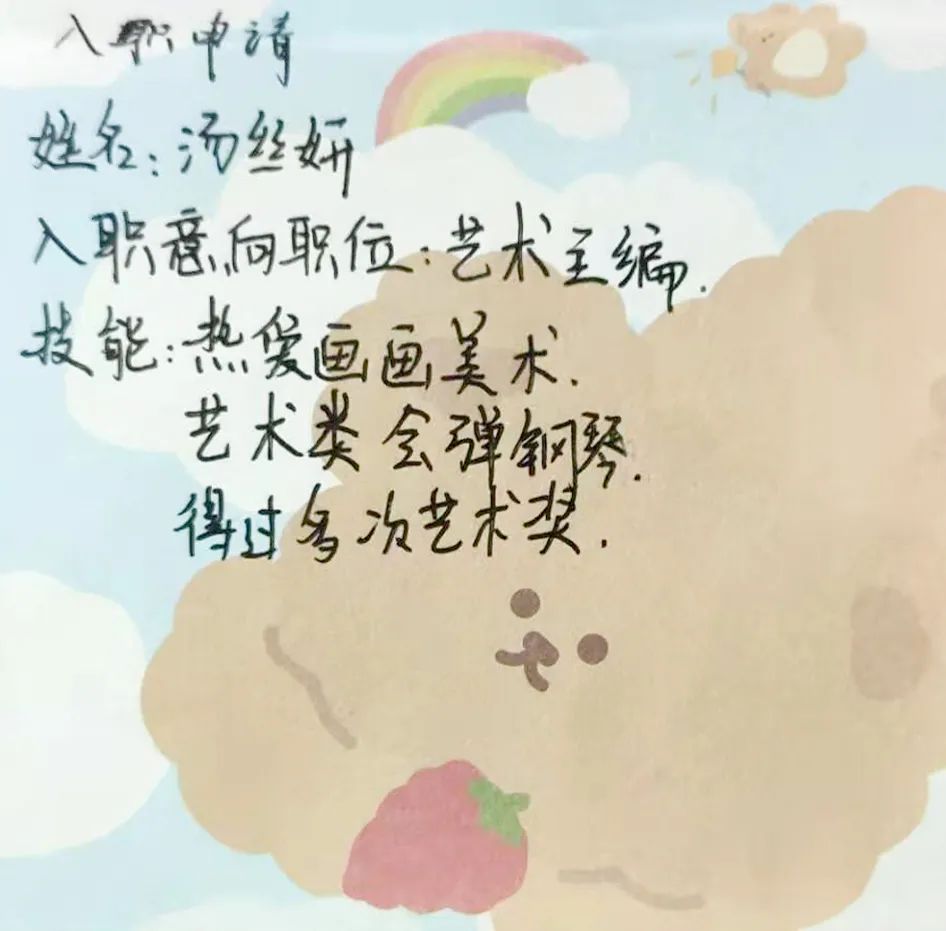 入职申请
姓名：汤丝妍
入职意向职位：艺术主编.
技能：热爱画画美术.
艺术类会弹钢琴.
得过多次艺术奖.